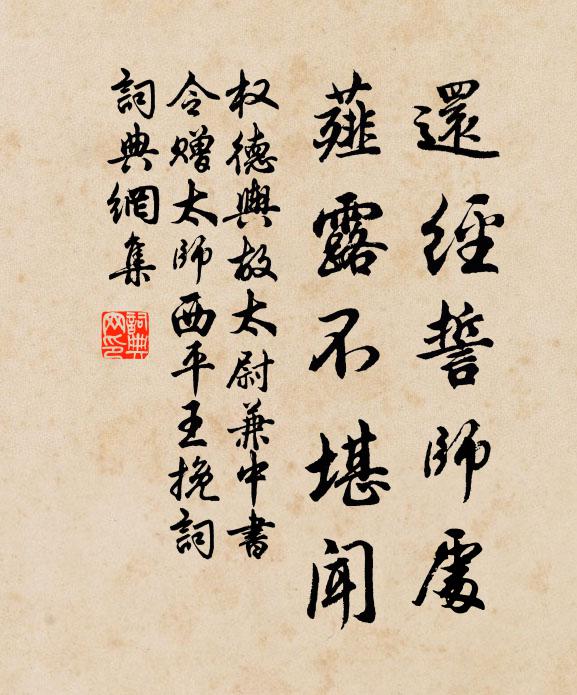 還經誓師處
薤露不堪聞
权德輿故太尉兼中書
令赠太师西平王挽詞
詞典網集
詞典
网印